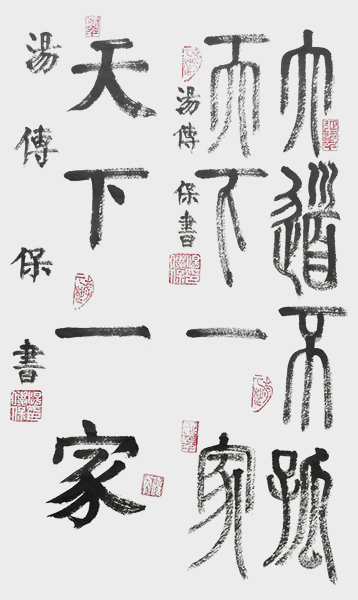 大道不孤
天下一家
湯傳保書
天下一家
湯傳保書